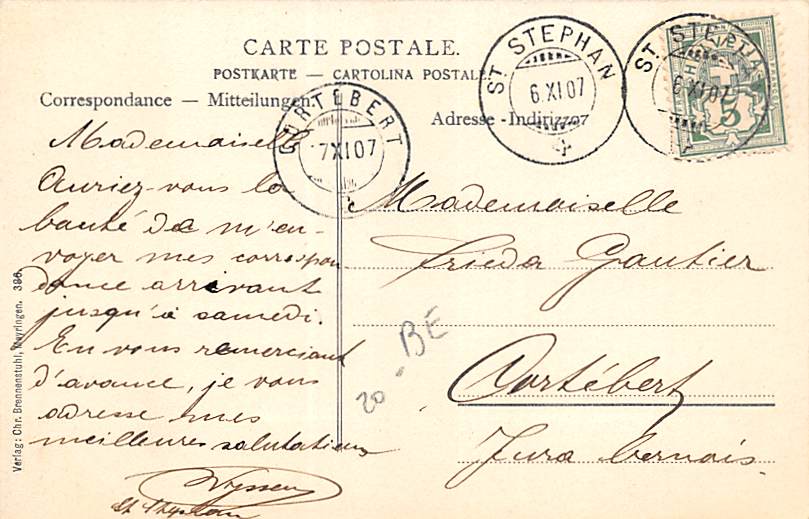 CARTE POSTALE.
POSTKARTE — CARTOLINA POSTALE
Correspondance — Mitteilungen.
Adresse - Indirizzo
ST. STEPHAN
6.XI.07
ST. STEPHAN
6.XI.07
HELVETIA
5
CORTÉBERT
7.XI.07
Mademoiselle
Auriez-vous la
bonté de m'en-
voyer mes correspon
dance arrivant
jusqu'à samedi.
En vous remerciant
d'avance, je vous
adresse mes
meilleures salutations
Wyssen
St. Stephan
Mademoiselle
Frieda Gautier
Cortébert
Jura bernois.
20.-
BE
Verlag: Chr. Brennenstuhl, Meyringen. 396.